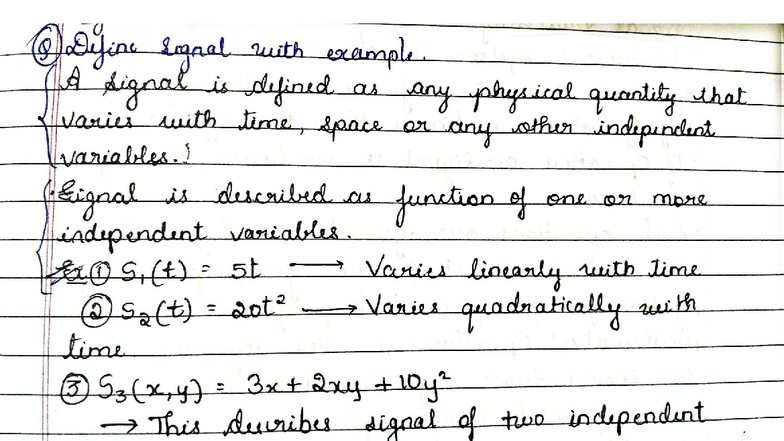 Q Define Signal with example.
A Signal is defined as any physical quantity that
varies with time, space or any other independent
variables.
Signal is described as function of one or more
independent variables.
Ex ① S₁(t) = 5t → Varies linearly with time
② S₂(t) = 20t² → Varies quadratically with
time
③ S₃(x,y) = 3x + 2xy + 10y²
→ This decribes signal of two independent